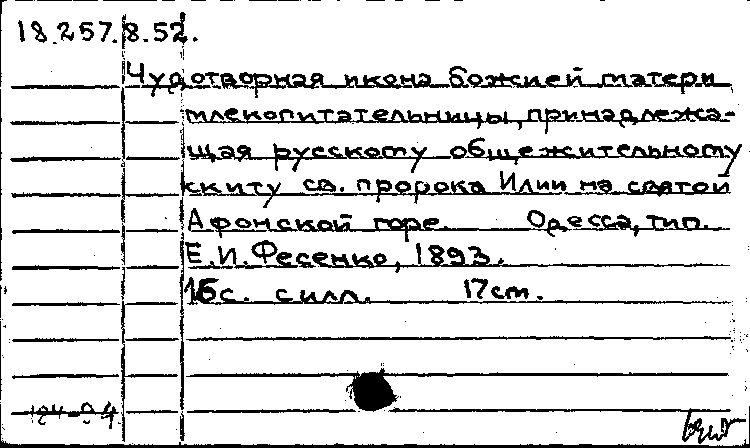 18.257.8.52.
Чудотворная икона божией матери
млекопитательницы, принадлежа-
щая русскому общежительному
скиту св. пророка Илии на святой
Афонской горе. Одесса, тип.
Е.И. Фесенко, 1893.
16с. силл. 17cm.